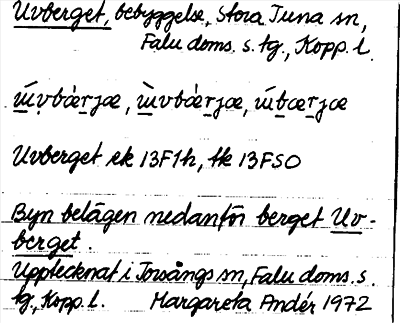 Uvberget, bebyggelse, Stora Tuna sn,
Falu doms. s. tg., Kopp. l.
ɯ́v̥bær̲jæ, ɯ̀vbær̲jæ, ɯ́bær̲jæ
Uvberget ek 13F1h, tk 13FSO
Byn belägen nedanför berget Uv-
berget.
Upptecknat i Torsångs sn, Falu doms. s.
tg., Kopp. l. Margareta Andér 1972